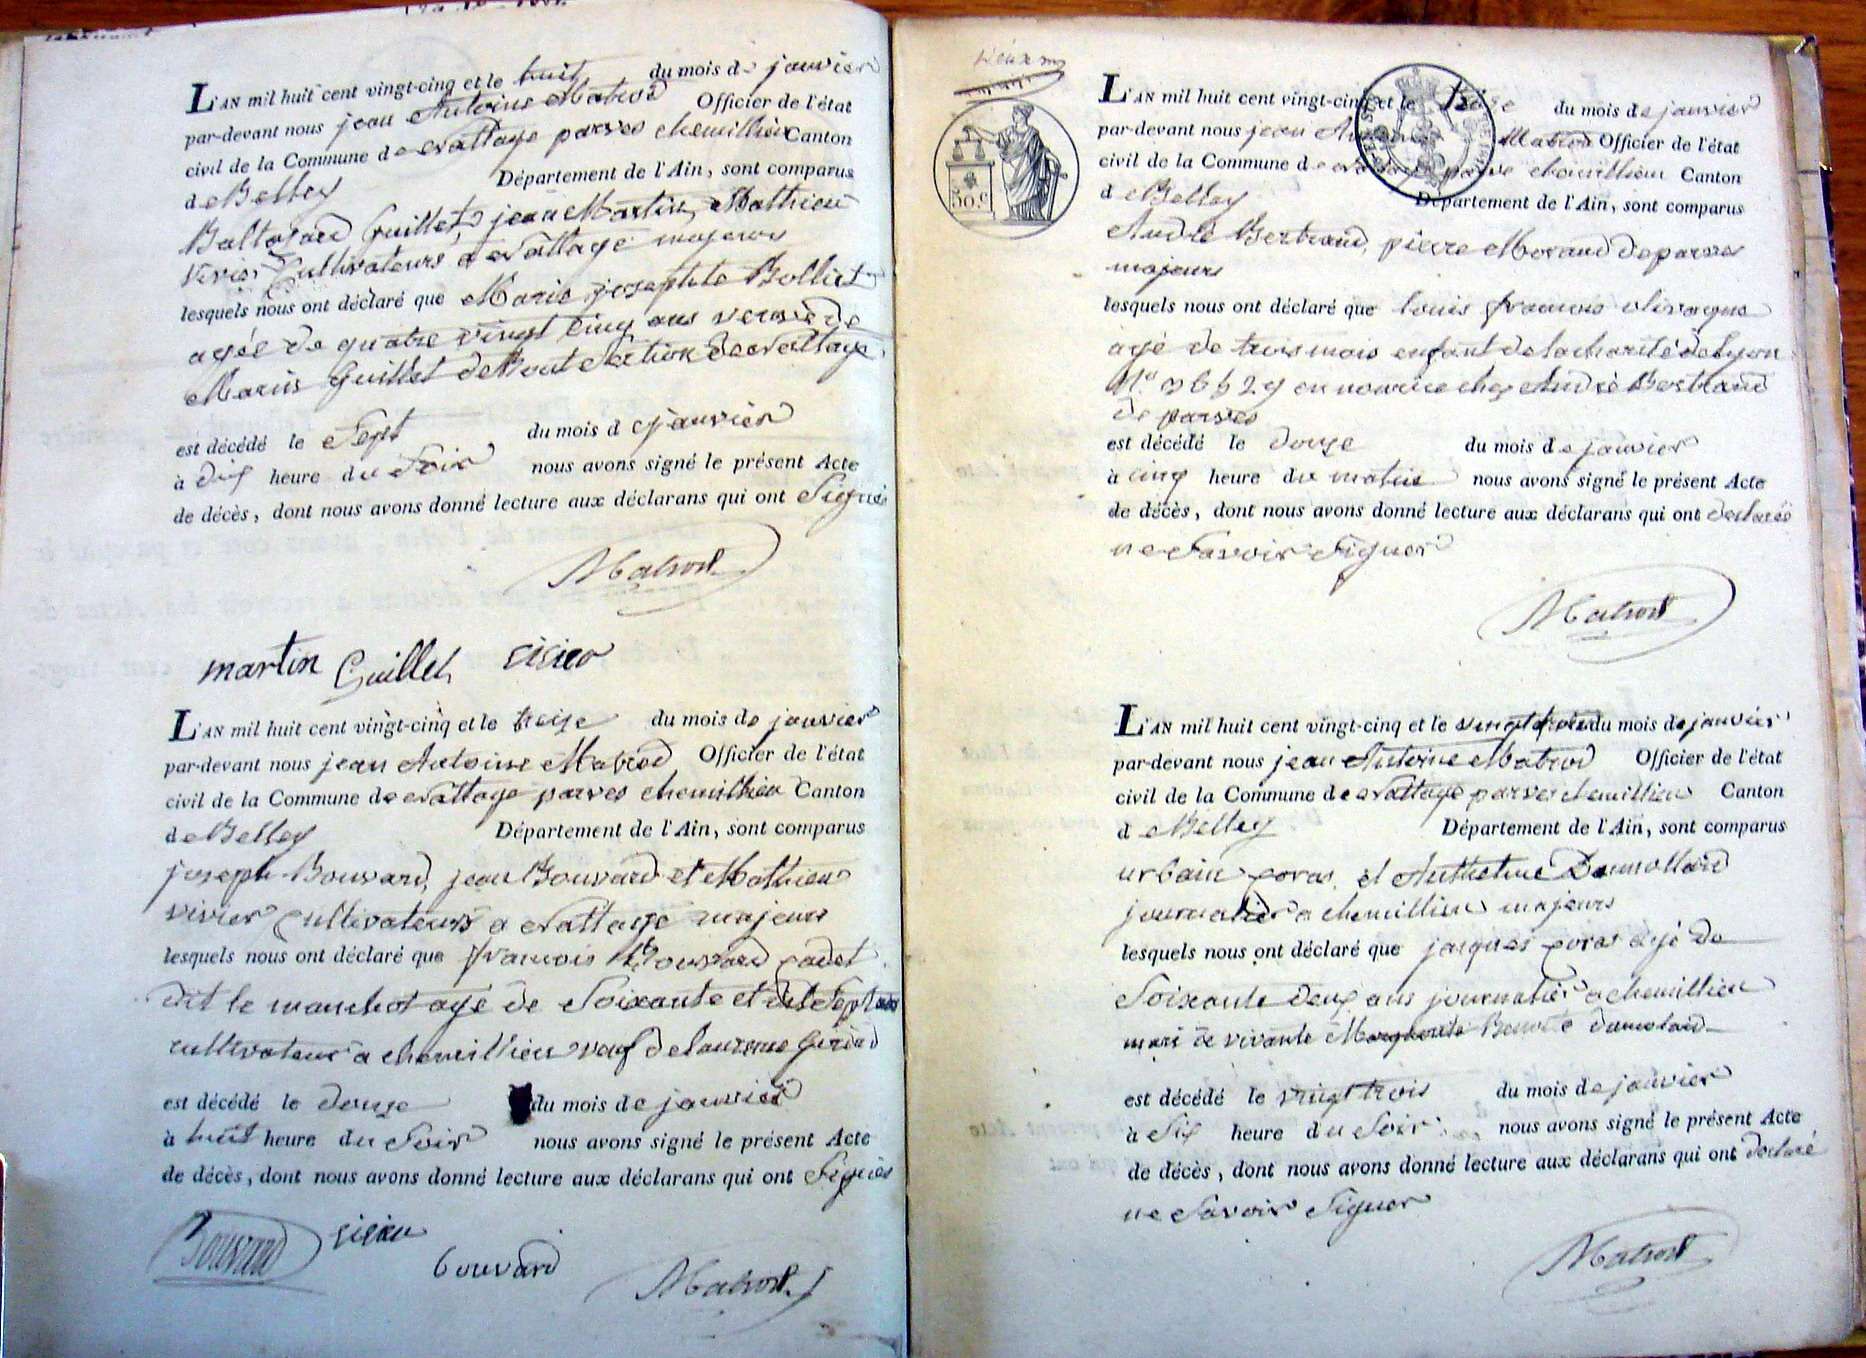 L'AN mil huit cent vingt-cinq et le huit du mois de janvier
par-devant nous jean Antoine Matrod Officier de l'état
civil de la Commune de Nattage parves chemillieu Canton
de Belley Département de l'Ain, sont comparus
Baltazard Guillet, jean Martin, Mathieu
Vivier Cultivateurs a Nattage majeurs
lesquels nous ont déclaré que Marie josephte Bolliet
agée de quatre vingt cinq ans veuve de
Marin Guillet de section de Nattage
est décédé le Sept du mois de janvier
à dix heure du Soir nous avons signé le présent Acte
de décès, dont nous avons donné lecture aux déclarans qui ont Signés
Matrod
martin Guillet vivier
L'AN mil huit cent vingt-cinq et le treize du mois de janvier
par-devant nous jean Antoine Matrod Officier de l'état
civil de la Commune de Nattage parves chemillieu Canton
de Belley Département de l'Ain, sont comparus
joseph Bouvard, jean Bouvard et Mathieu
vivier Cultivateurs a Nattage majeurs
lesquels nous ont déclaré que francois Bouvard cadet
dit le manchot agé de Soixante et dix Sept ans
cultivateur a chemillieu veuf de laurence
est décédé le douze du mois de janvier
à huit heure du Soir nous avons signé le présent Acte
de décès, dont nous avons donné lecture aux déclarans qui ont Signés
Bouvard vivier
bouvard Matrod
deux
50.c
L'AN mil huit cent vingt-cinq et le treize du mois de janvier
par-devant nous jean Matrod Officier de l'état
civil de la Commune de parve chemillieu Canton
de Belley Département de l'Ain, sont comparus
André Bertrand, pierre Morand de parves
majeurs
lesquels nous ont déclaré que louis francois
agé de trois mois enfant de la charité de Lyon
en nourrice chez André Bertrand
de parves
est décédé le douze du mois de janvier
à cinq heure du matin nous avons signé le présent Acte
de décès, dont nous avons donné lecture aux déclarans qui ont declarés
ne Savoir Signer
Matrod
L'AN mil huit cent vingt-cinq et le vingt trois du mois de janvier
par-devant nous jean Antoine Matrod Officier de l'état
civil de la Commune de Nattage parves chemillieu Canton
de Belley Département de l'Ain, sont comparus
urbain goras et Anthelme Dumollard
journalier a chemillieu majeurs
lesquels nous ont déclaré que jacques goras agé de
Soixante deux ans journalier a chemillieu
mari de vivante Benoite dumolard
est décédé le vingt trois du mois de janvier
à Six heure du Soir nous avons signé le présent Acte
de décès, dont nous avons donné lecture aux déclarans qui ont declaré
ne Savoir Signer
Matrod